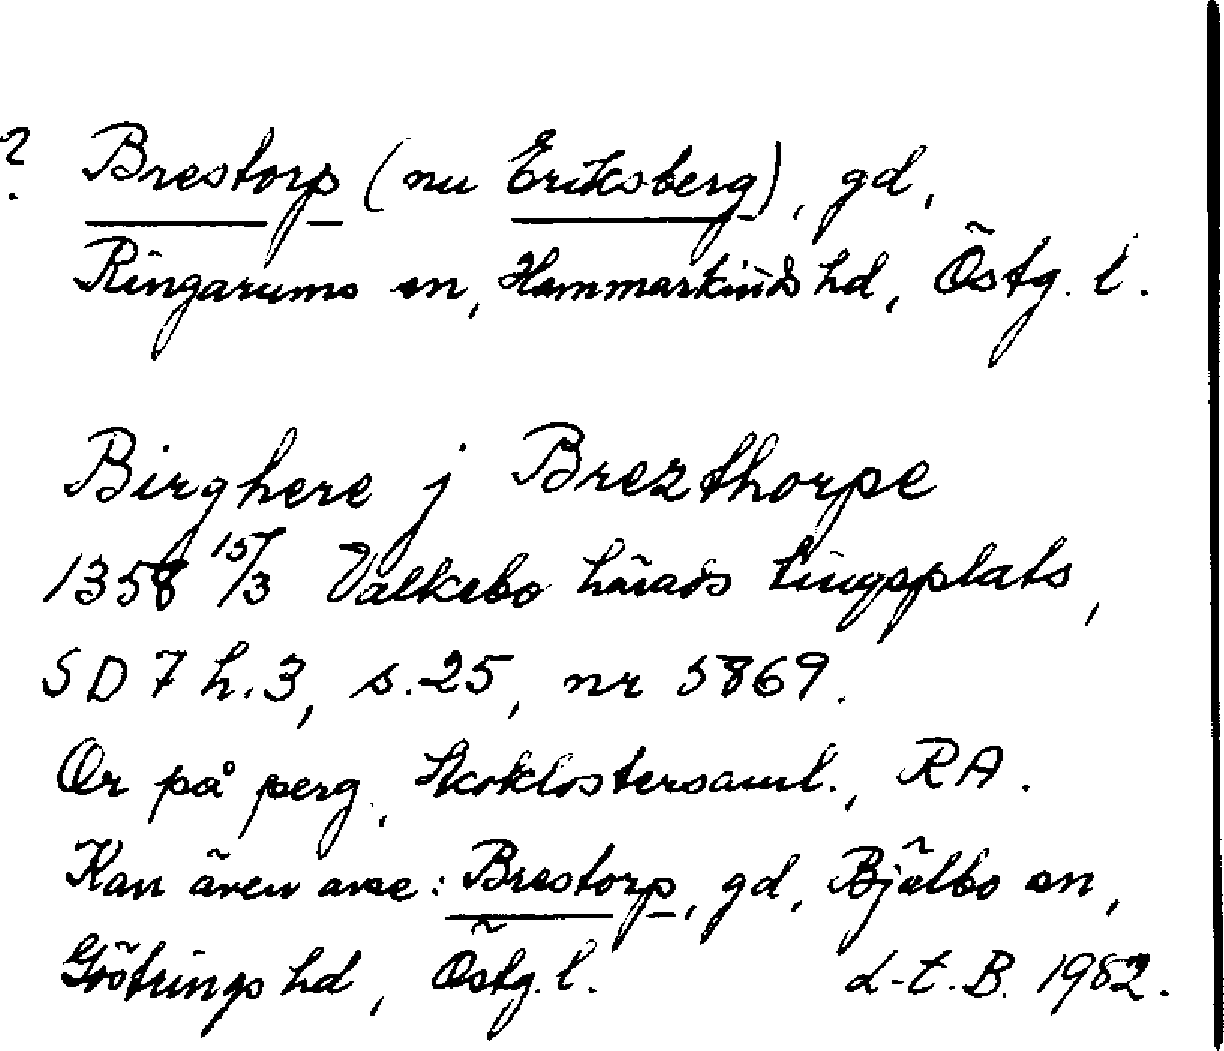 ? Brestorp (nu Eriksberg), gd,
Ringarums sn, Hammarkinds hd, Östg. l.
Birghere j Brezthorpe
1358 15/3 Valkebo härads tingsplats,
SD 7 h.3, s.25, nr 5869.
Or på perg., Skoklostersaml., RA.
Kan även avse: Brestorp, gd, Bjälbo sn,
Göstrings hd, Östg. l. L-t. B. 1982.